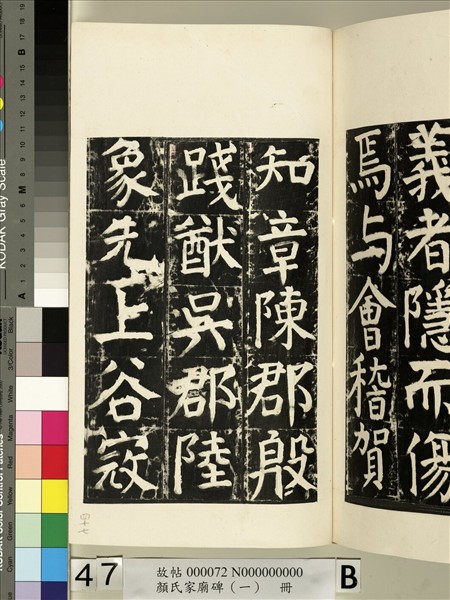 義者隱而傷
焉与會稽賀
知章陳郡殷
踐猷吳郡陸
象先上谷寇
四十七
47
故帖 000072 N000000000
顏氏家廟碑(一) 冊
B
KODAK Gray Scale
A 1 2 3 4 5 6 M 8 9 10 11 12 13 14 15 B 17 18 19
KODAK Color Control Patches
Blue Cyan Green Yellow Red Magenta White 3/Color Black